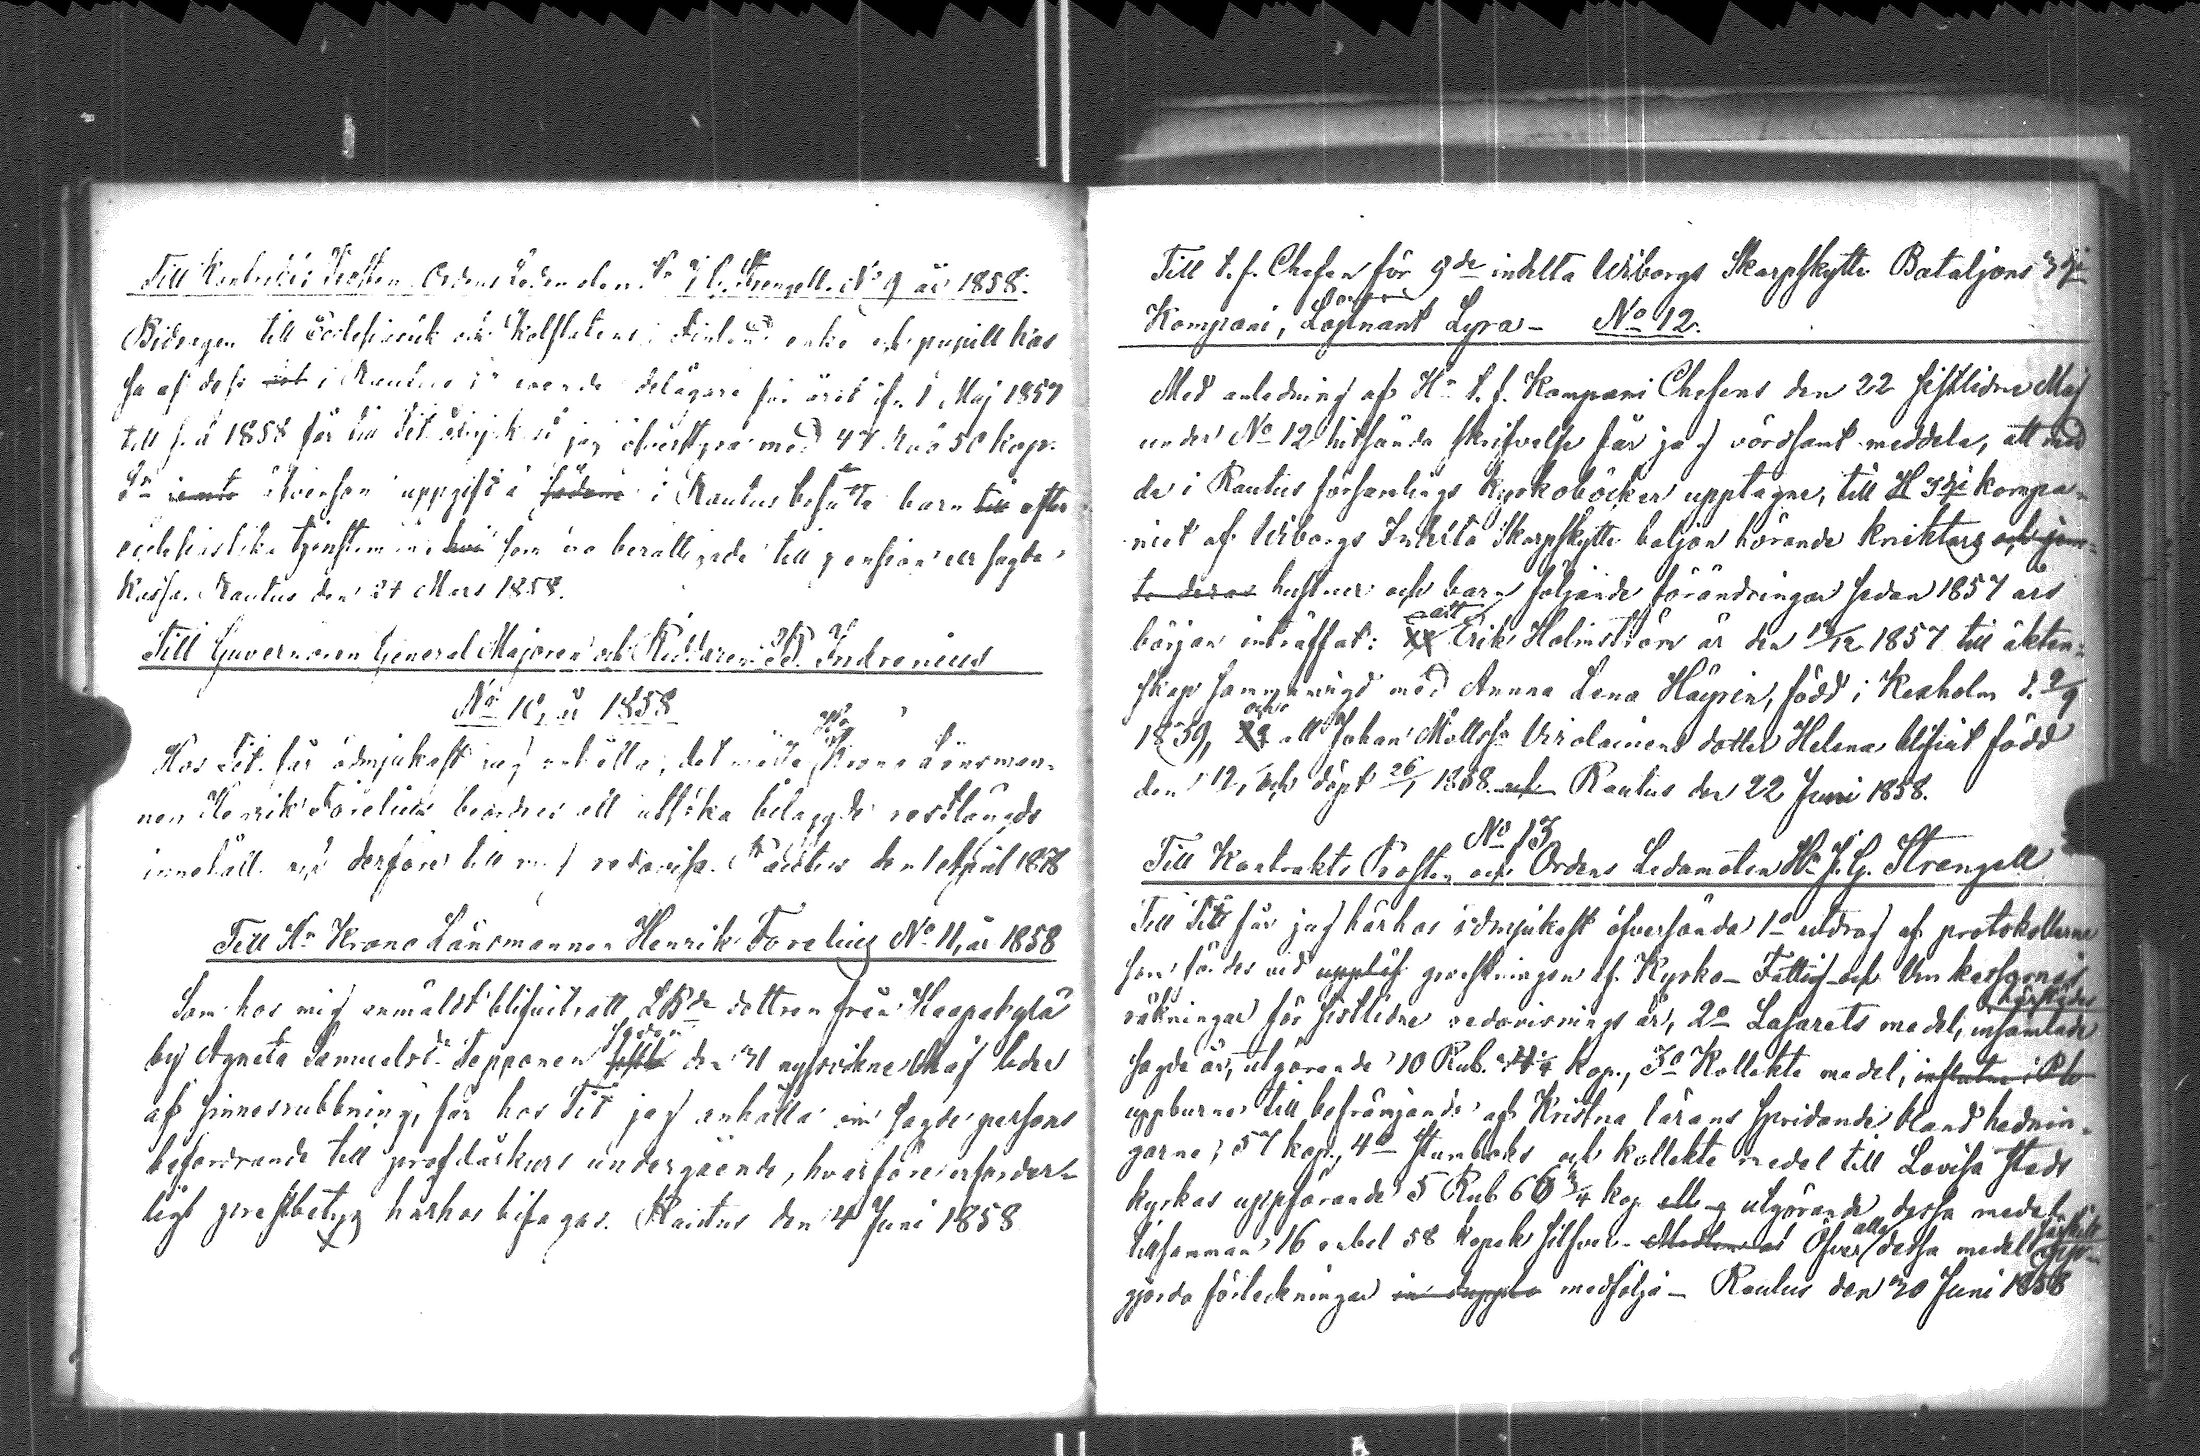 Till Kontrakts Prosten Ordens Ledamoten Hr J. G. Strengell. No 9 år 1858.
Bidragen till Ecclesiasik och Kolstatens i Finland enke och pupill kas
sa af dess i Rautus varande delägare för året ifrån 1 Maj 1857
till s. d. 1858 får till Tit ödmjukast jag öfverstyra med 47 Rub 50 kop.
äfvensom uppgift å i Rautus bosatta barn till efter
ecclesiastika tjenstemän som äro berättigade till pension ur sagde
kassa. Rautus den 27 Mars 1858.
Till Guvernören General Majoren och Riddaren B. Indrenius
No 10, år 1858
Hos Tit. får ödmjukast jag anhålla, det måtte Hr Krono Länsman-
nen Henrik Forelius beordras att utsöka bilagde restlängds
innehåll och derföre till mig redovisa. Rautus den 1 April 1858
Till Hr Krono Länsmannen Henrik Forelius No 11, år 1858
Som hos mig anmäldt blifvit, att LBde dottren från Haapakylä
by Agneta Samuelsdr Tepponen sedan den 31 nystvikne Maj lider
af sinnesrubbning, får hos Tit jag anhålla om sagde persons
befordrande till profdårkurs undergående, hvarföre erforder-
ligt prestbetyg härhos bifogas. Rautus den 4 Juni 1858
Till t. f. Chefen för 9de indelta Wiborgs Skarpskytte Bataljons 3dje
Kompani, Löjtnant Lyra - No 12.
Med anledning af Hr t. f. Kompani Chefens den 22 sistlidne Maj
under No 12 hitsända skrifvelse får jag vördsamt meddela, att med
de i Rautus församlings kyrkoböcker upptagne, till H 3dje kompa-
niet af Wiborgs Indelta Skarpskytte baljon hörande knektars och jem-
te deras hustrur och barn följande förändringar sedan 1857 års
början inträffat: att Erik Holmström är den 19/12 1857 till äkten-
skap sammanvigd med Annna Lena Häyrin, född i Kexholm d. 2/9
1839, och att Johan Mattss Virolainens dotter Helena blifvit född
den 12, och döpt 26/1 1858. och Rautus den 22 Juni 1858.
No 13
Till Kontrakts Prosten och Ordens Ledamoten Hr J. G. Strengell
Till Tit får jag härhos ödmjukast öfversända 1o utdrag af protokollerne
som fördes vid granskningen af Kyrko- Fattig- och Vin kassornas
räkningar för sistlidne redovisnings år, 2o Lasarets medel, insamlade
sagde år, utgörande 10 Rub. kop., 3o Kollekte medel,
uppburne till befrämjande af Kristna lärans spridande bland hednin-
garne, 57 kop., 4o Stamboks och kollekte medel till Lovisa stads
kyrkas uppförande 5 Rub 66 3/4 kop. utgörande dessa medel
tillsamman 16 rubel 58 kopek silfver - Öfver alla dessa medel särskilt upp-
gjorda förteckningar in duplo medfölja - Rautus den 30 Juni 1858